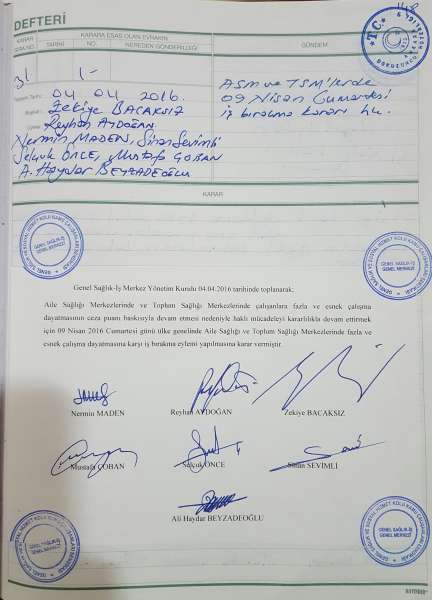 148
DEFTERİ
KARAR
SIRA NO.
KARARA ESAS OLAN EVRAKIN
TARİHİ
NO.
NEREDEN GÖNDERİLDİĞİ
GÜNDEM
T.C.
31
1-
04 04 2016.
Zekiye BACAKSIZ
Reyhan AYDOĞAN
Nermin MADEN, Sinan Sevimli
Selçuk ÖNCE, Mustafa ÇOBAN
A. Haydar BEYZADEOĞLU
ASM ve TSM'lerde
09 Nisan Cumartesi
iş bırakma kararı hk.
KARAR
GENEL SAĞLIK-İŞ
GENEL MERKEZİ
GENEL SAĞLIK-İŞ
GENEL MERKEZİ
Genel Sağlık-İş Merkez Yönetim Kurulu 04.04.2016 tarihinde toplanarak;
Aile Sağlığı Merkezlerinde ve Toplum Sağlığı Merkezlerinde çalışanlara fazla ve esnek çalışma
dayatmasının ceza puanı baskısıyla devam etmesi nedeniyle haklı mücadeleyi kararlılıkla devam ettirmek
için 09 Nisan 2016 Cumartesi günü ülke genelinde Aile Sağlığı ve Toplum Sağlığı Merkezlerinde fazla ve
esnek çalışma dayatmasına karşı iş bırakma eylemi yapılmasına karar vermiştir.
Nermin MADEN
Reyhan AYDOĞAN
Zekiye BACAKSIZ
Mustafa ÇOBAN
Selçuk ÖNCE
Sinan SEVİMLİ
Ali Haydar BEYZADEOĞLU
GENEL SAĞLIK-İŞ
GENEL MERKEZİ
GENEL SAĞLIK-İŞ
GENEL MERKEZİ